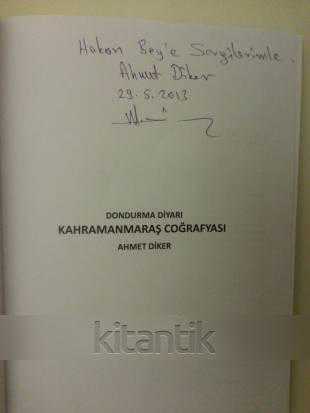 Hakan Bey'e Sevgilerimle.
Ahmet Diker
29.5.2013
DONDURMA DİYARI
KAHRAMANMARAŞ COĞRAFYASI
AHMET DİKER
kitantik